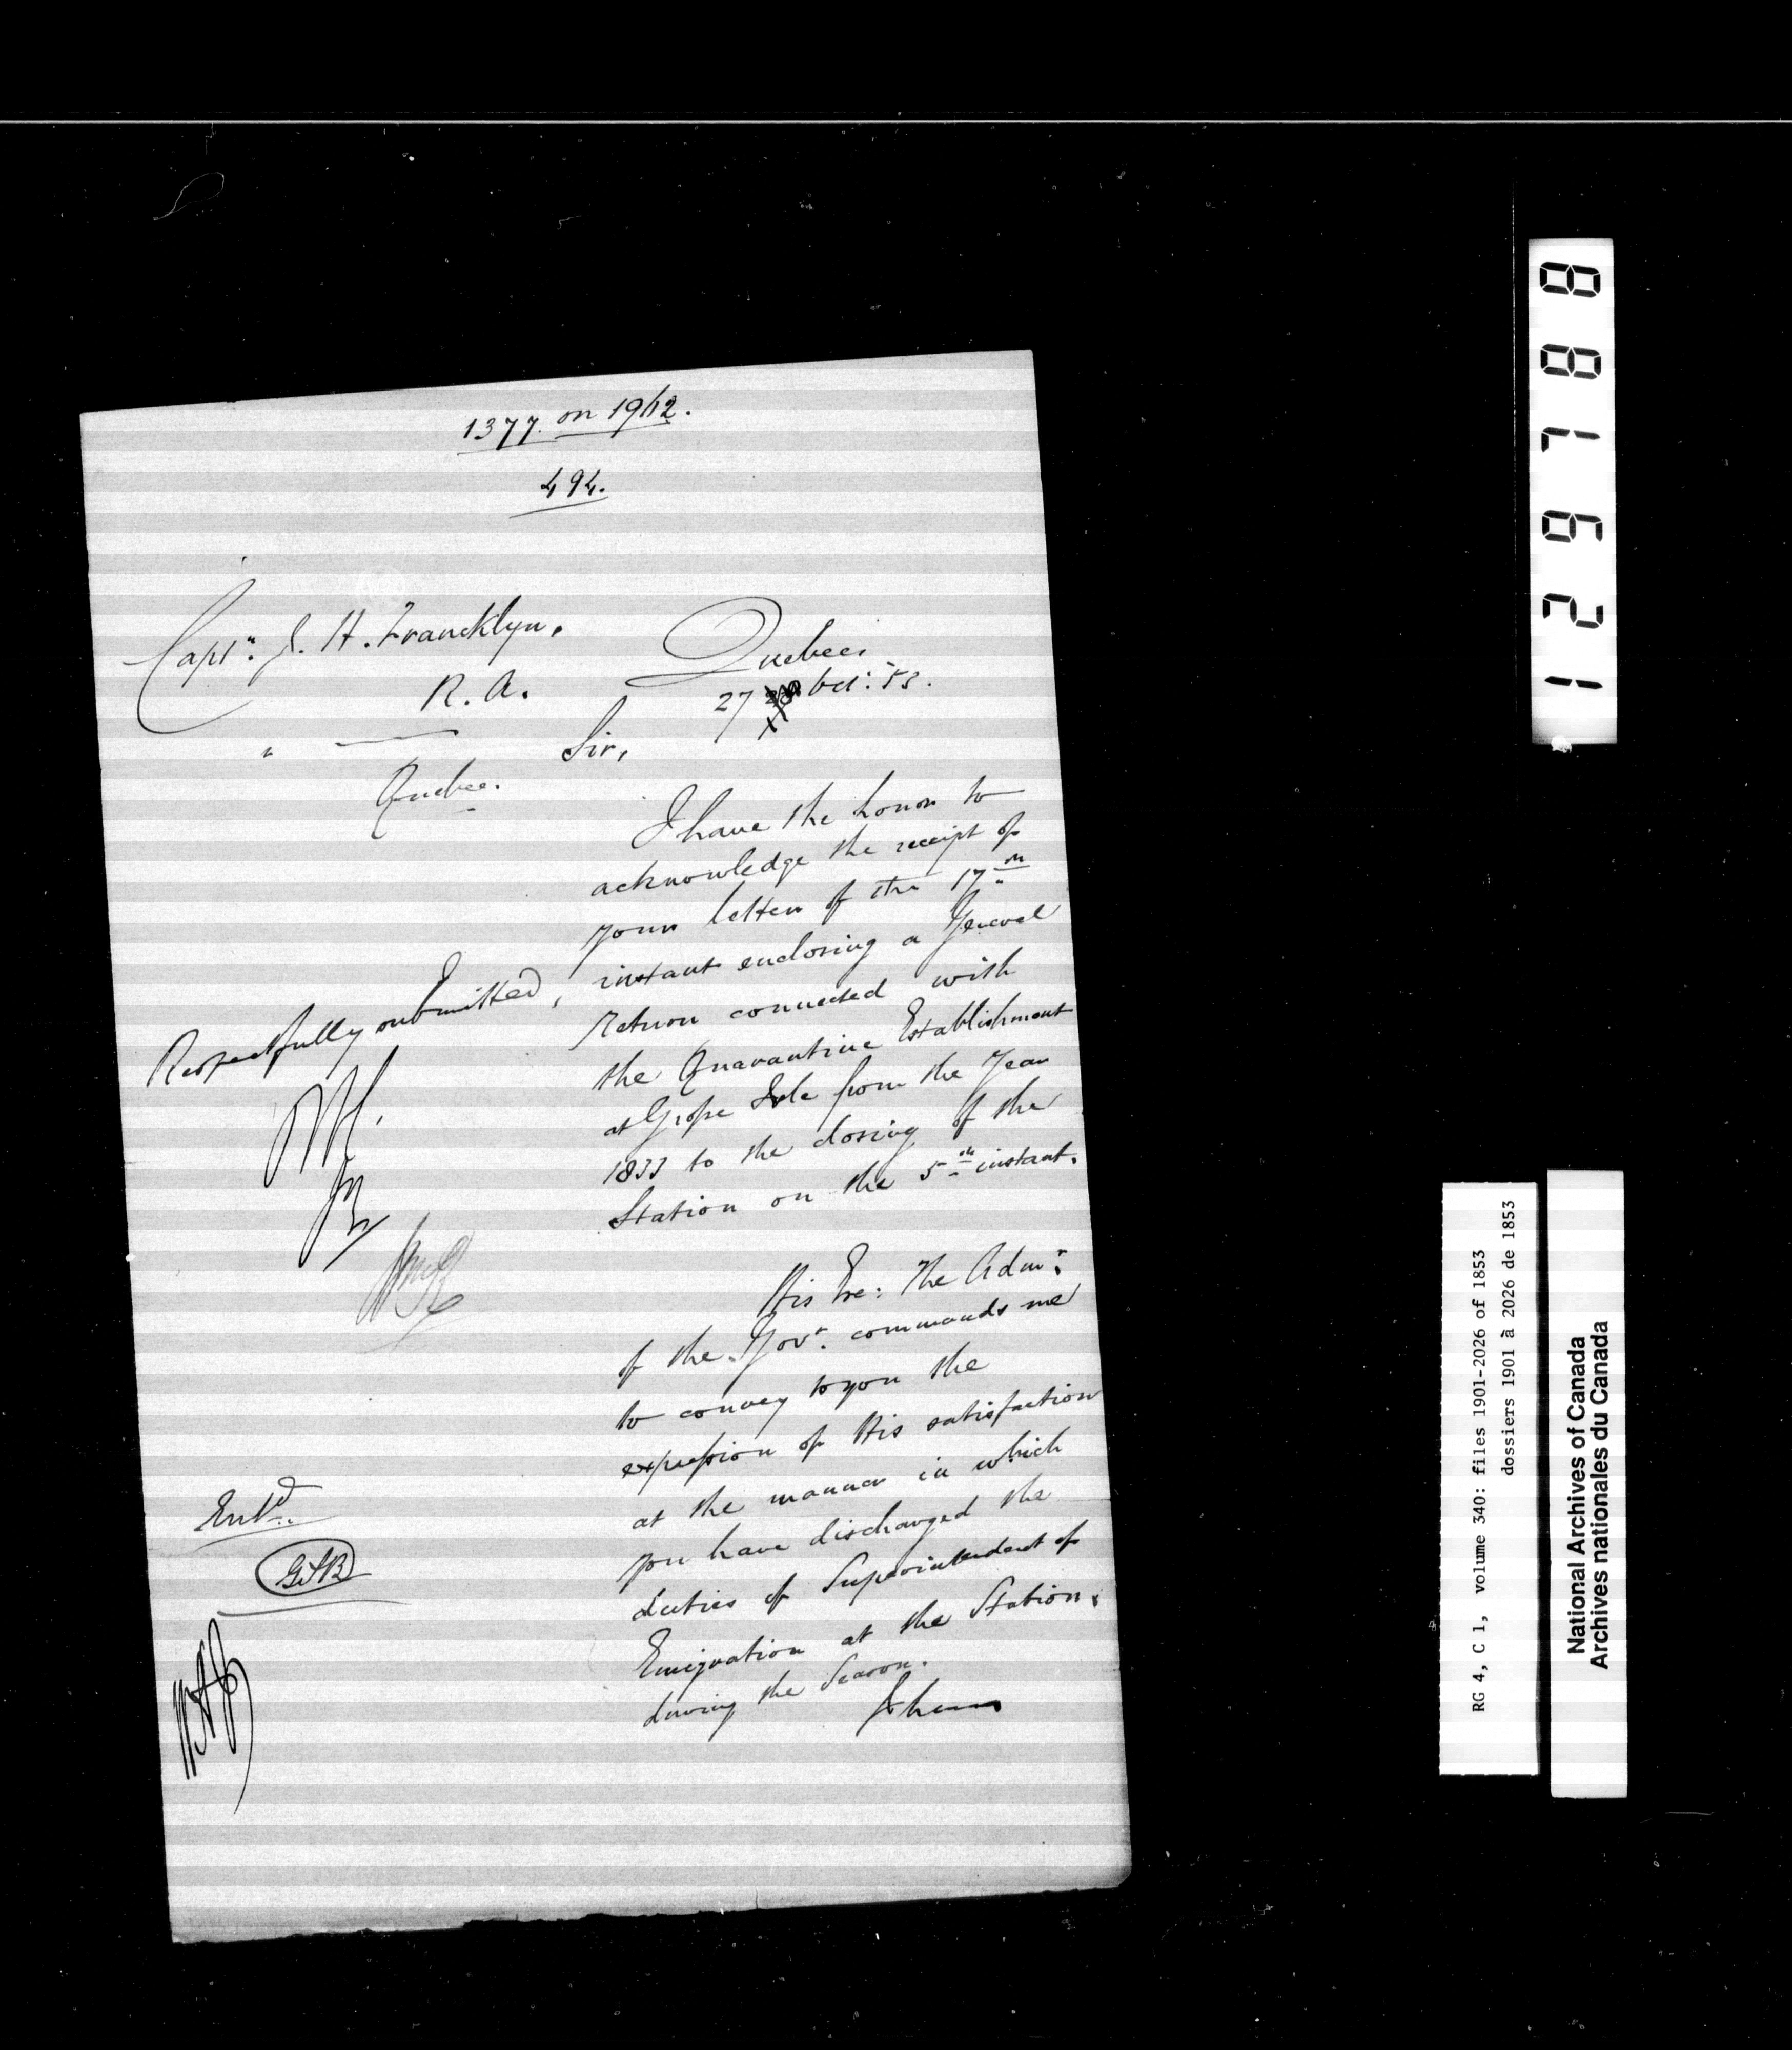 1377 on 1942.
494.
Capt<sup>n</sup>. J. H. Francklyn.
R. A.
Quebec.
Quebec.
27 Oct<sup>r</sup>: 53.
Sir,
I have the honor to
acknowledge the receipt of
your letter of the 17<sup>th</sup>
instant enclosing a General
Return connected with
the Quarantine Establishment
at Grosse Isle from the Year
1833 to the closing of the
Station on the 5<sup>th</sup> instant.
His Exc: The Adm<sup>r</sup>:
of the Gov<sup>t</sup>. commands me
to convey to you the
expression of His satisfaction
at the manner in which
you have discharged the
duties of Superintendent of
Emigration at the Station,
during the Season.
I have
Respectfully submitted,
Ent<sup>d</sup>.
12978 8
RG 4, C 1, volume 340: files 1901-2026 of 1853
dossiers 1901 à 2026 de 1853
National Archives of Canada
Archives nationales du Canada